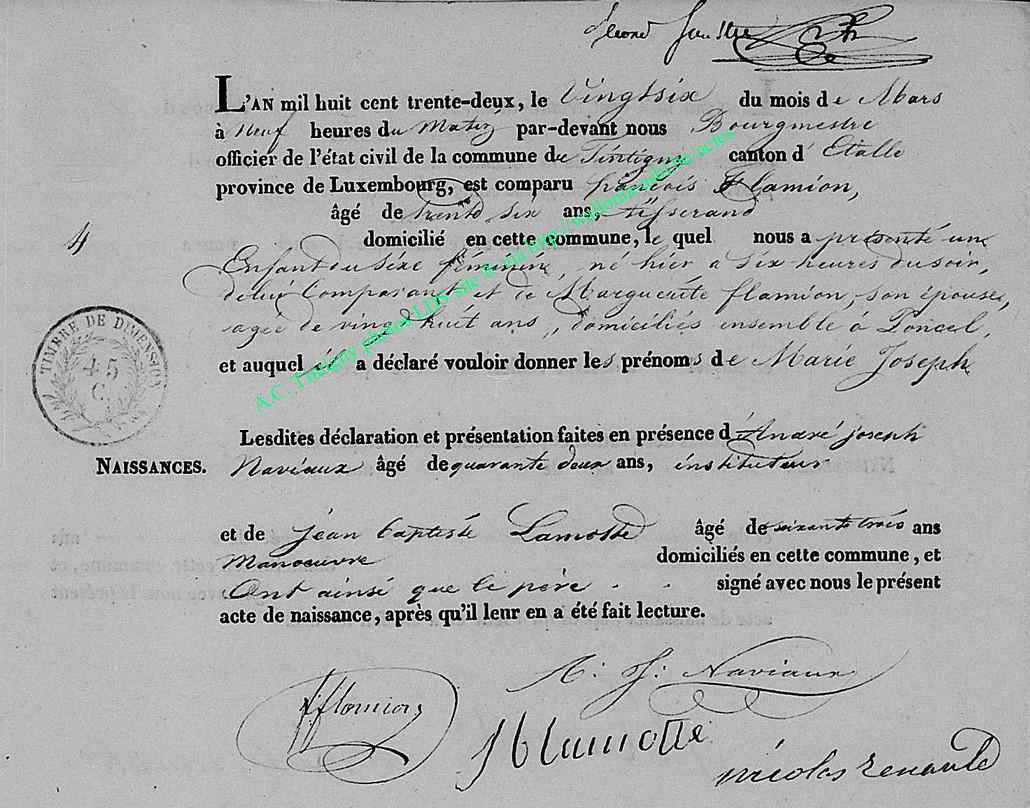 L'AN mil huit cent trente-deux, le Vingtsix du mois de Mars
à neuf heures du Matin par-devant nous Bourgmestre
officier de l'état civil de la commune de Tintigny canton d'Etalle
province de Luxembourg, est comparu françois Flamion,
âgé de trente six ans, tisserand
4
domicilié en cette commune, le quel nous a présenté une
Enfant du séxe féminin, né hier a six heures du soir,
de lui Comparant et de Marguerite flamion, son épouse,
agée de vingt huit ans, domiciliés ensemble a Poncel,
et auquel il a déclaré vouloir donner les prénoms de Marie Joseph
TIMBRE DE DIMENSION
45
C.
Lesdites déclaration et présentation faites en présence d'André joseph
NAISSANCES.
Naviaux âgé de quarante deux ans, instituteur
et de jean baptiste Lamotte âgé de soixante trois ans
manoeuvre domiciliés en cette commune, et
Ont ainsi que le père signé avec nous le présent
acte de naissance, après qu'il leur en a été fait lecture.
A. J. Naviaux
fflamion
JBlamotte
nicolas
A.C. Tintigny photos LDS site & via http://wallonia-asbl.be/actes